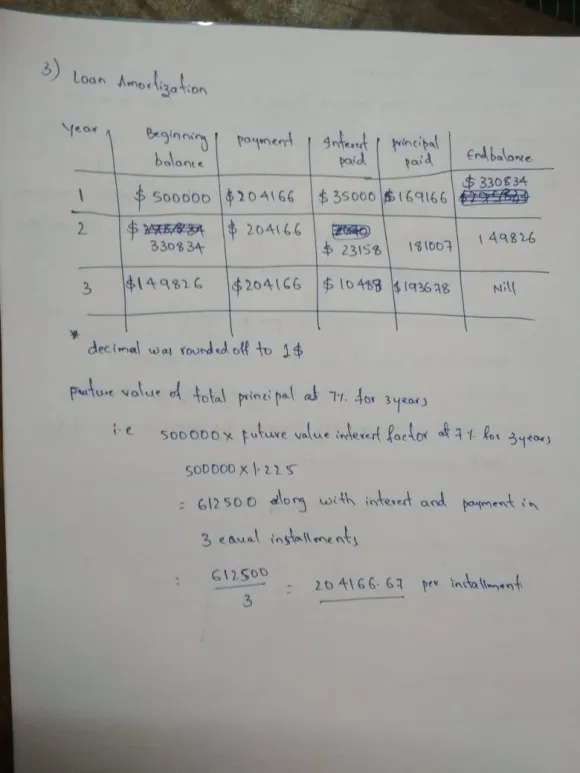 3) Loan Amortization
Year Beginning balance payment Interest paid principal paid Endbalance
1 $ 500000 $204166 $35000 $169166 $330834
2 $ 330834 $ 204166 $ 23158 181007 149826
3 $149826 $204166 $10488 $193678 Nill
* decimal was rounded off to 1$
Future value of total principal at 7% for 3years
i.e 500000 x future value interest factor at 7% for 3years
500000 x 1.225
= 612500 along with interest and payment in
3 equal installments
= 612500 / 3 = 204166.67 per installment